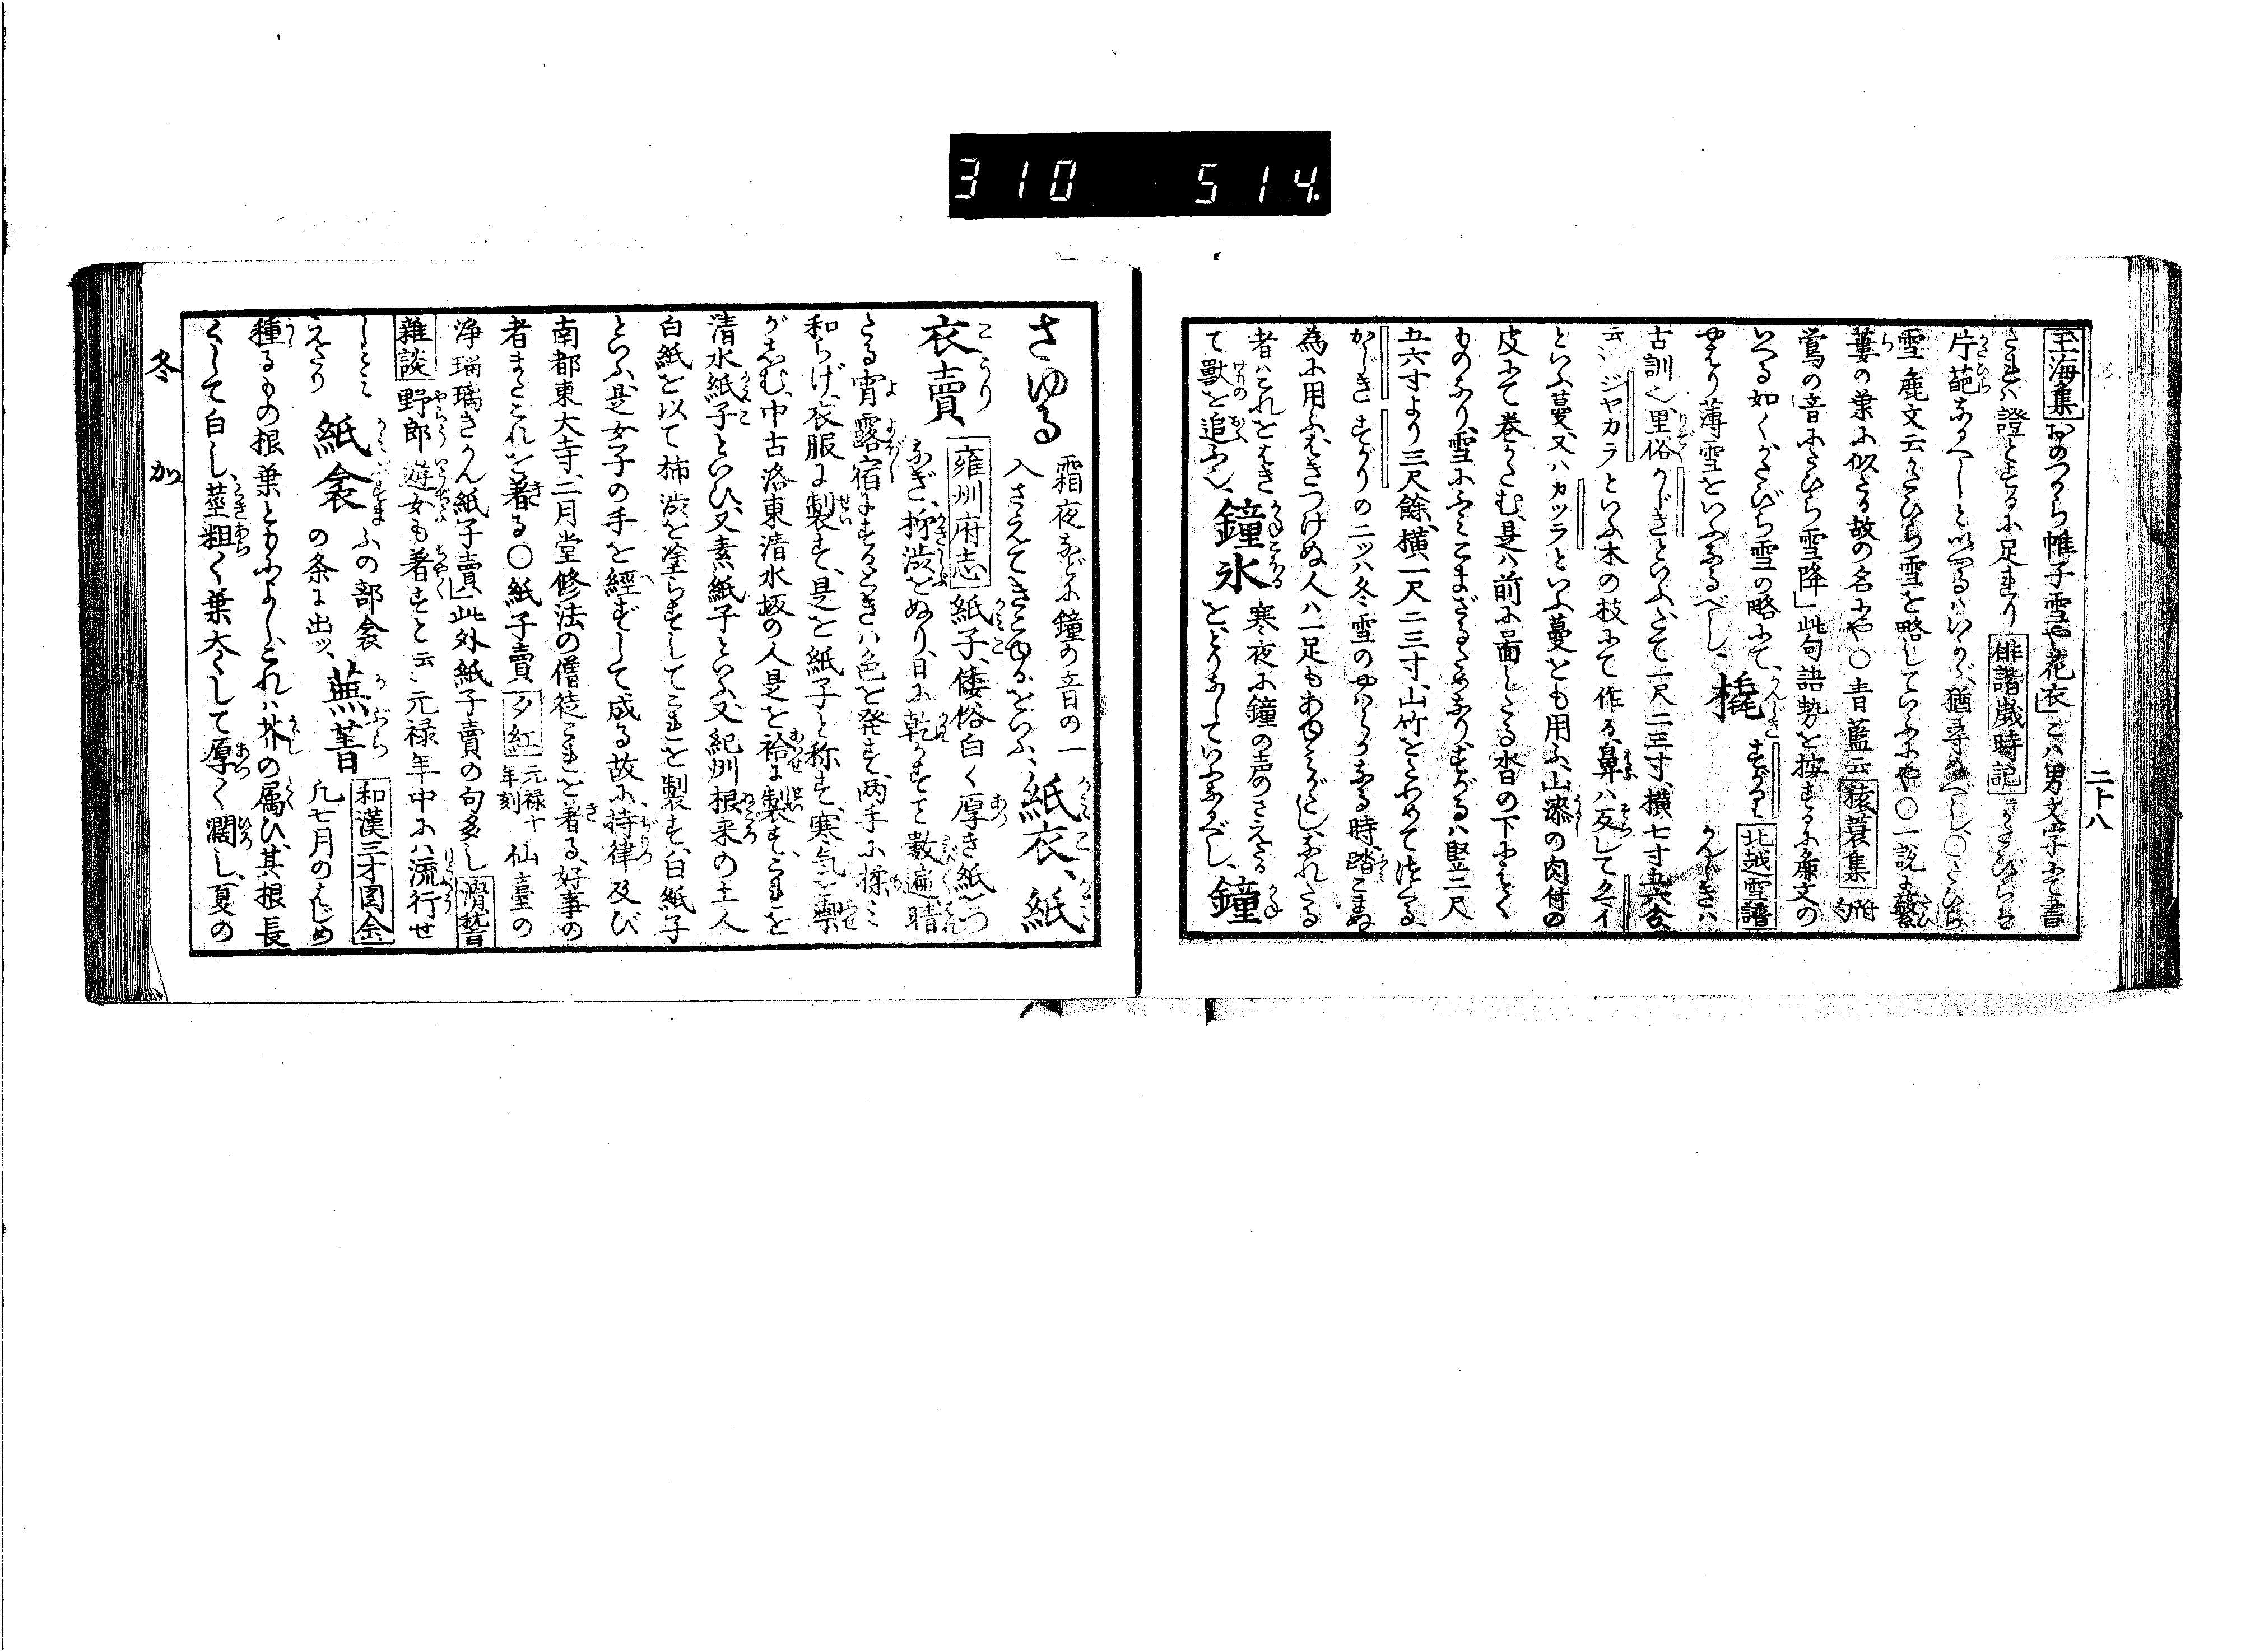 310 514.
二十八
玉海集 おのつから帷子雪や花衣」こハ男文字にて書
たれバ證とするに足れり 俳諧歳時記 かたびらを
片葩なるべしと以へるハいかゞ、猶尋ぬべし、〇たひら
雪鹿文云かたひら雪を略していふにや〇一説に蘩
蔞の葉に似たる故の名にや〇青藍云 猿蓑集 附句
鶯の音にたひら雪降」此句語勢を按するに鹿文の
いへる如くかたびら雪の略にて、
やはり薄雪をいふなるべし、橇 すがり 北越雪譜 かんじきハ
古訓く里俗かじきといふ、たて一尺二三寸、横七寸五六分
云〻ジヤカラといふ木の枝にて作る、鼻ハ反してクイ
といふ蔓又ハカツラといふ蔓をも用ふ、山漆の肉付の
皮にて巻かたむ、是ハ前に図したる沓の下にはく
ものなり、雪にふみこまざるためなり、すがるハ竪二尺
五六寸より三尺餘、横一尺二三寸、山竹をたわめて作る、
かじきすがりの二ツハ冬雪のやハらかなる時踏こまぬ
為に用ふ、はきつけぬ人ハ一足もあゆみがたし、なれたる
者ハこれをはき
て獸を追ふ〻、鐘氷 寒夜に鐘の声のさえたる
を、とりなしていふなるべし、鐘
さゆる 霜夜などに鐘の音の一
入さえてきこゆるをいふ、紙衣、紙
衣賣 雍州府志 紙子、倭俗白く厚き紙をつ
なぎ、柿渋をぬり、日に乾かすこと數遍、晴
たる宵露宿にするときハ色を発す、両手に揉〻
和らげ、衣服に製す、是を紙子と称す、寒気を禦
がしむ、中古洛東清水坂の人是を袷に製す、これを
清水紙子といひ、又素紙子といふ、又紀州根来の土人
白紙を以て柿渋を塗らすしてこれを製す、白紙子
といふ、是女子の手を經ずして成る故に、持律及び
南都東大寺、二月堂修法の僧徒これを着る、好事の
者またこれを着る〇紙子賣 夕紅 元禄十年刻 仙臺の
浄瑠璃きかん紙子賣」此外紙子賣の句多し 滑稽
雜談 野郎遊女も著すと云〻元禄年中にハ流行せ
しとこ
えたり 紙衾 ふの部衾
の条に出ッ、蕪菁 和漢三才図会 凡七月のはじめ
種るもの根葉ともによし、これハ芥の属ひ、其根長
くして白し、莖粗く葉大くして厚く濶し、夏の
冬 加